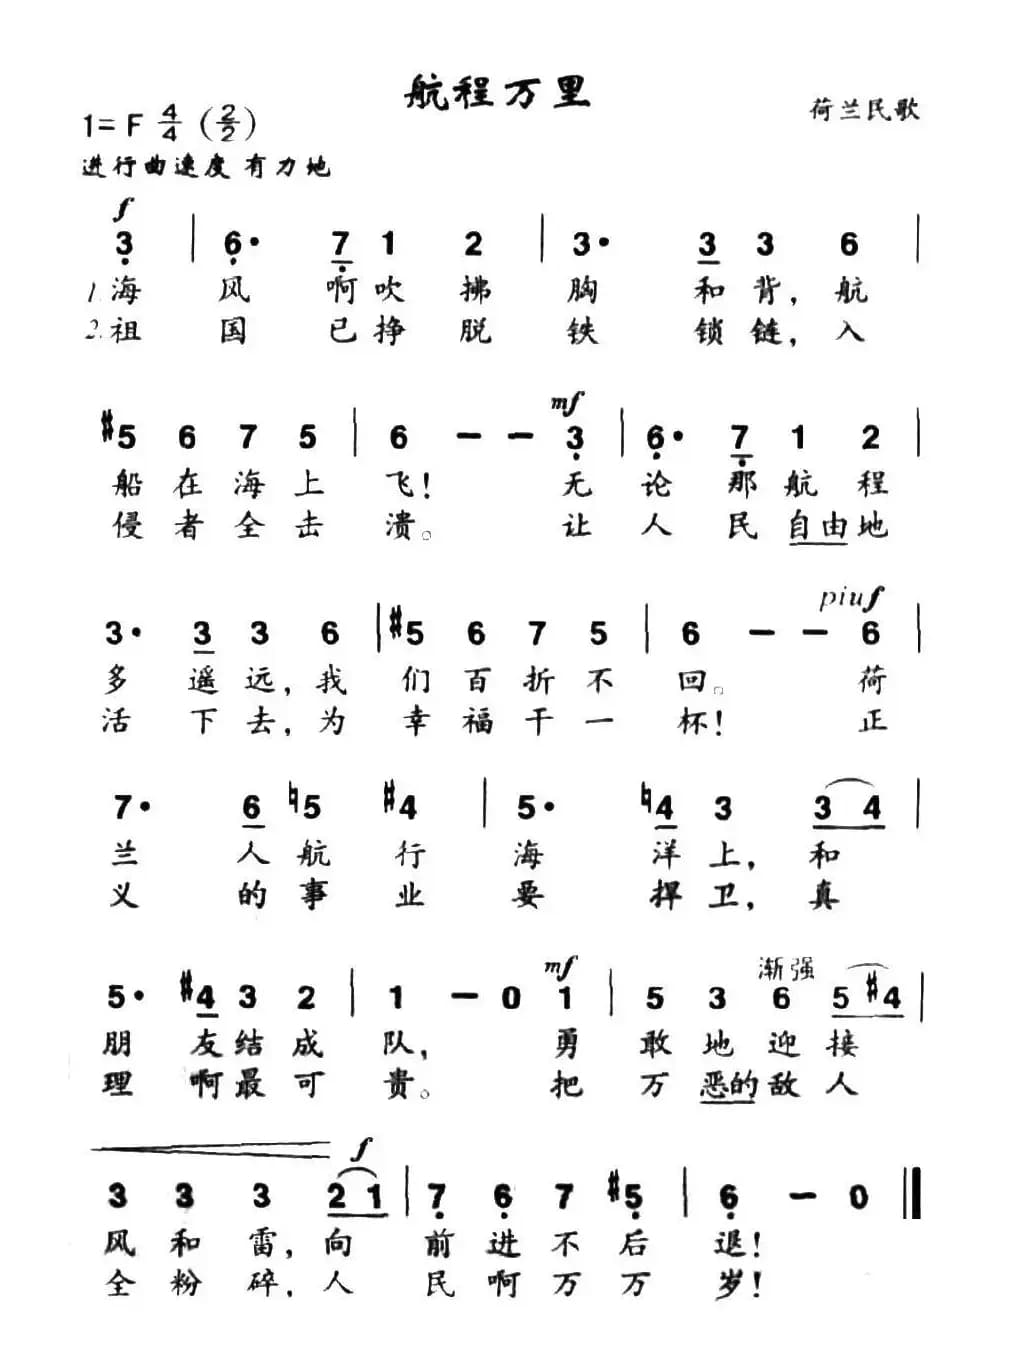 航程万里
1= F 4/4 (2/2)
荷兰民歌
进行曲速度 有力地
f
3 | 6· 7 1 2 | 3· 3 3 6 |
1.海 风 啊吹 拂 胸 和 背, 航
2.祖 国 已挣 脱 铁 锁 链, 入
mf
#5 6 7 5 | 6 - - 3 | 6· 7 1 2 |
船 在 海 上 飞! 无 论 那 航 程
侵 者 全 击 溃。 让 人 民 自由地
piuf
3· 3 3 6 | #5 6 7 5 | 6 - - 6 |
多 遥 远, 我 们 百 折 不 回。 荷
活 下 去, 为 幸 福 干 一 杯! 正
7· 6 ♮5 #4 | 5· ♮4 3 3 4 |
兰 人 航 行 海 洋 上, 和
义 的 事 业 要 捍 卫, 真
mf 渐强
5· #4 3 2 | 1 - 0 1 | 5 3 6 5 #4 |
朋 友 结 成 队, 勇 敢 地 迎 接
理 啊 最 可 贵。 把 万 恶的 敌 人
f
3 3 3 2 1 | 7 6 7 #5 | 6 - 0 ‖
风 和 雷, 向 前 进 不 后 退!
全 粉 碎, 人 民 啊 万 万 岁!